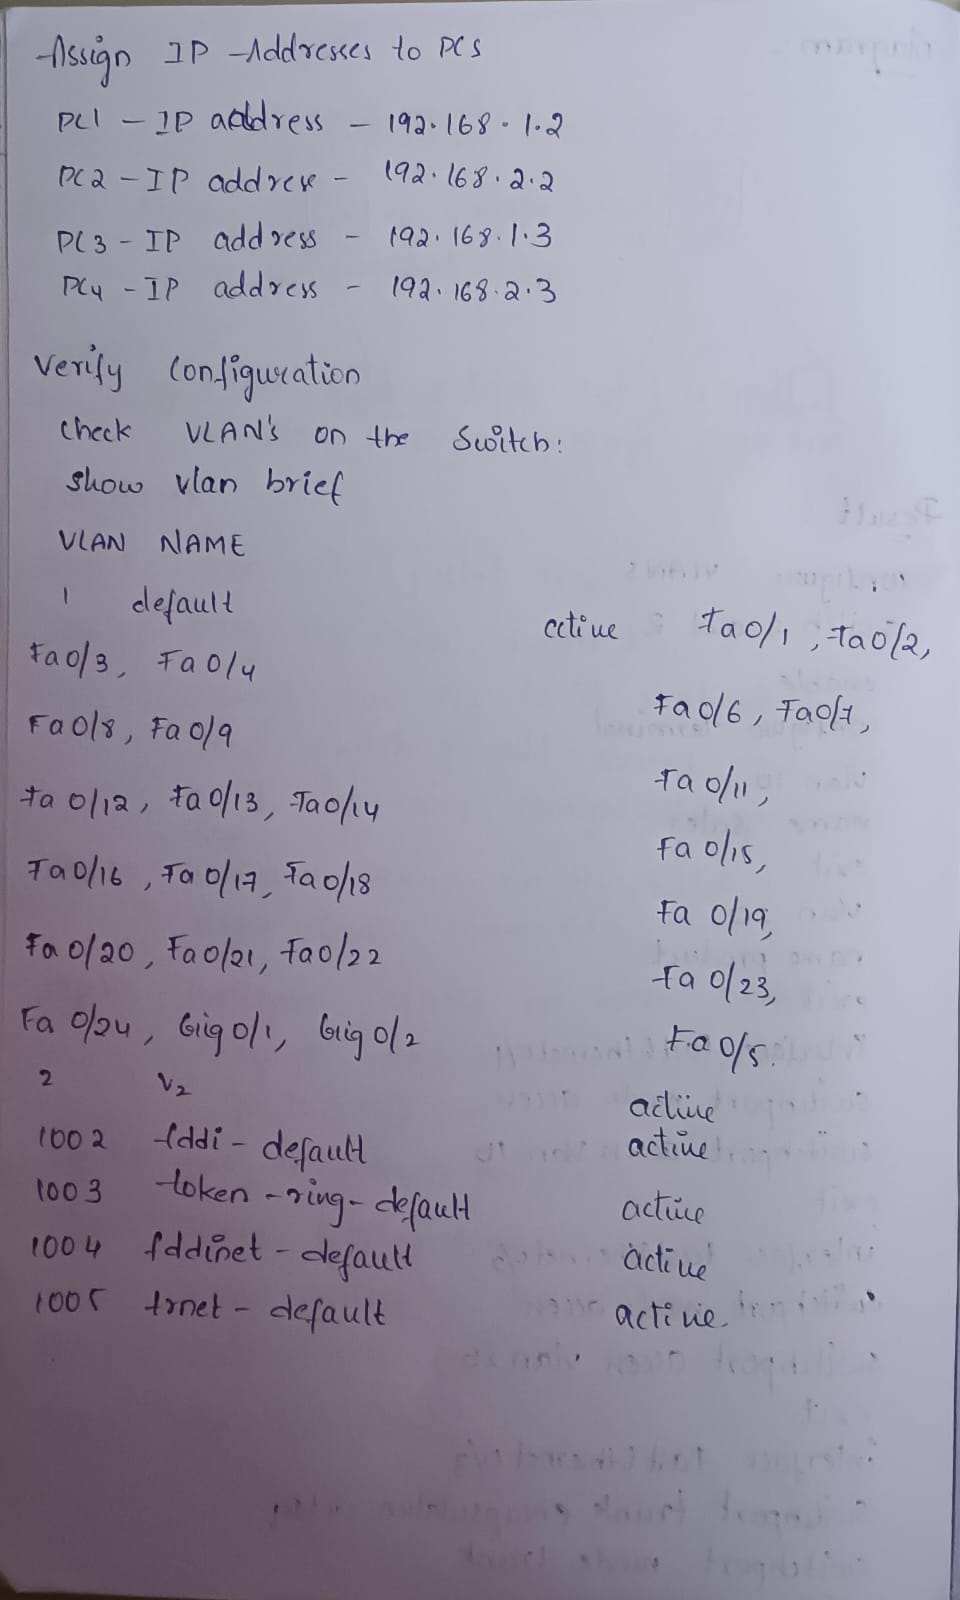 Assign IP Addresses to PCs
PC1 - IP address - 192.168.1.2
PC2 - IP address - 192.168.2.2
PC3 - IP address - 192.168.1.3
PC4 - IP address - 192.168.2.3
Verify Configuration
check VLAN's on the Switch:
show vlan brief
VLAN NAME
1 default
active Fa0/1, Fa0/2,
Fa0/3, Fa0/4
Fa0/6, Fa0/7,
Fa0/8, Fa0/9
Fa0/11,
Fa0/12, Fa0/13, Fa0/14
Fa0/15,
Fa0/16, Fa0/17, Fa0/18
Fa0/19,
Fa0/20, Fa0/21, Fa0/22
Fa0/23,
Fa0/24, Gig0/1, Gig0/2
Fa0/5.
2 V2 active
1002 fddi-default active
1003 token-ring-default active
1004 fddinet-default active
1005 trnet-default active.